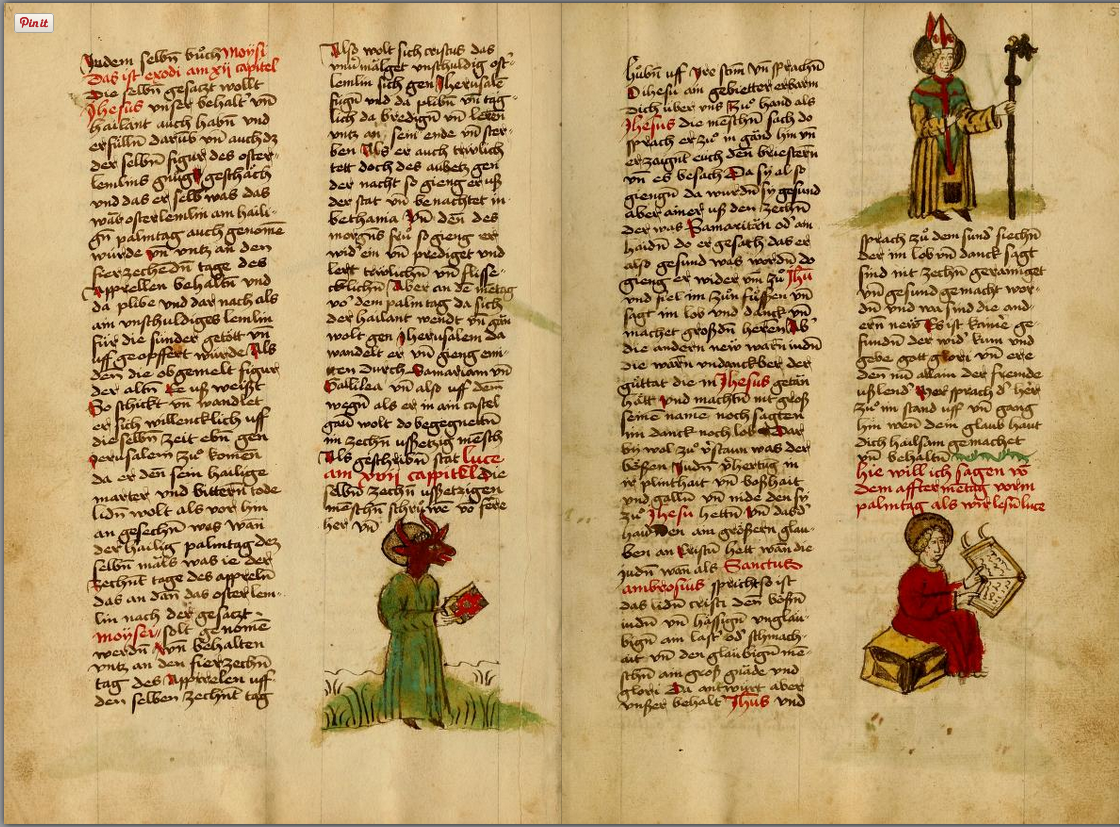 Pin it
Jn dem selbn buch Moysi
Das ist exodi am xij capitel
Die selbn gesaczt wollt
Jhesus vnser behalt vn
hailant auch habn vnd
erfülln darüb vn auch dz
der selbn figur des oster-
lemlins gnug geschäch
vnd das er selb was das
wär osterlemlin am haili-
gn palmtag auch genome
wurde vn vntz an den
fierzechedn tage des
Apprellen behaltn vnd
da plibe vnd dar nach als
am vnschuldiges lemlin
für die sünder getött vn
uff geopffert wurde Als
den die obgemelt figur
der altn Ee uß weißt
So schickt vn wandlet
er sich willencklich uff
die selbn zeit ebn gen
Jerusalem zu komen
da er den sein hailige
marter vnd bittern tode
lidn wolt als vor hin
an gesechn was wan
der hailig palmtag dez
selbn mals was ie der
zechnt tage des apprelln
das an dan das osterlem-
lin nach der gesaczt
Moysei solt genome
werdn Vnn behalten
vntz an den fierzechn
tag des Apprelen uff
den selben zechnt tag
Also wolt sich cristus das
vnschuldig ost-
lemlin sich gen Jherusale
fügn vnd da plibn vn täg-
lich da bredign vn leren
vntz an sein ende vn ster-
ben Als er auch trwlich
tett doch des aubetz gen
der nacht so gieng er uß
der stat vn benachtet in
bethania Vn den des
morgens fru so gieng er
wider ein vn prediget vnd
lert trwlichn vn flisse-
cklichn Aber an de metag
vo dem palmtag da sich
der hailant wendt vn gan
wolt gen Jherusalem da
wandelt er vn gieng emi-
tten durch Samariam vn
Galilea vn also uff dem
wegn als er in ain castel
gan wolt do begegnettn
im zechn ussetzig mesch
Als geschribn stat luce
am xvij cappitel die
selbn zechn ussetzigen
meschn schriwe vo fere
her vn
hübn uff Jre stim vn sprachn
O ihesu ain gebietter erbarm
dich über vns Zu hand als
Jhesus die meschn sach do
sprach er zu in gand hin vn
erzoigut euch den briestern
vn es besach Da sy also
giengn da wurdn sy gesund
aber ainer uß den zechn
der was Samaritan od ain
haidn do er gesach das er
also gesund was wordn do
gieng er wider vm zu Jhu
vnd fiel im zun füssen vn
sagt im lob vnd danck vn
machet großdn heren Ab
die andern new warn iudn
die warn vndanckber der
güttat die in Jhesus getan
hätt Vnd machtn nit groß
seinē namē noch sagten
im danck noch lob Dar
bij wol zu vstaun was der
bößen Judn vhertug in
ir plinthait vn boßhait
vnd galln vn nide den sy
zu Jhesu hettn vn das d
haiden am größern glau-
ben an Cristu hett wan die
judn wan als Sanctus
ambrosius spricht so ist
das lidn cristi den bösn
iudn vn hässign vnglau-
bign am last od schmach-
ait vn den glaubign me-
schn am groß gnade vnd
glori Da antwurt aber
vnßer behalt Jhus vnd
sprach zu dem sund siechn
der im lob vn danck sagt
sind nit zechn gerainiget
vn gesund gemacht wor-
dn vnd wa sind die and-
ern new Es ist kaine ge-
fundn der wid kum vnd
gebe gott glori vn ere
den nu allain der fremde
ußlend Der sprach d herr
zu im stand uff vn gang
hin wen dein glaub haut
dich hailsam gemachet
vn behaltn
hie will ich sagen vo
dem afftermetag vorm
palmtag als wir lesn luce